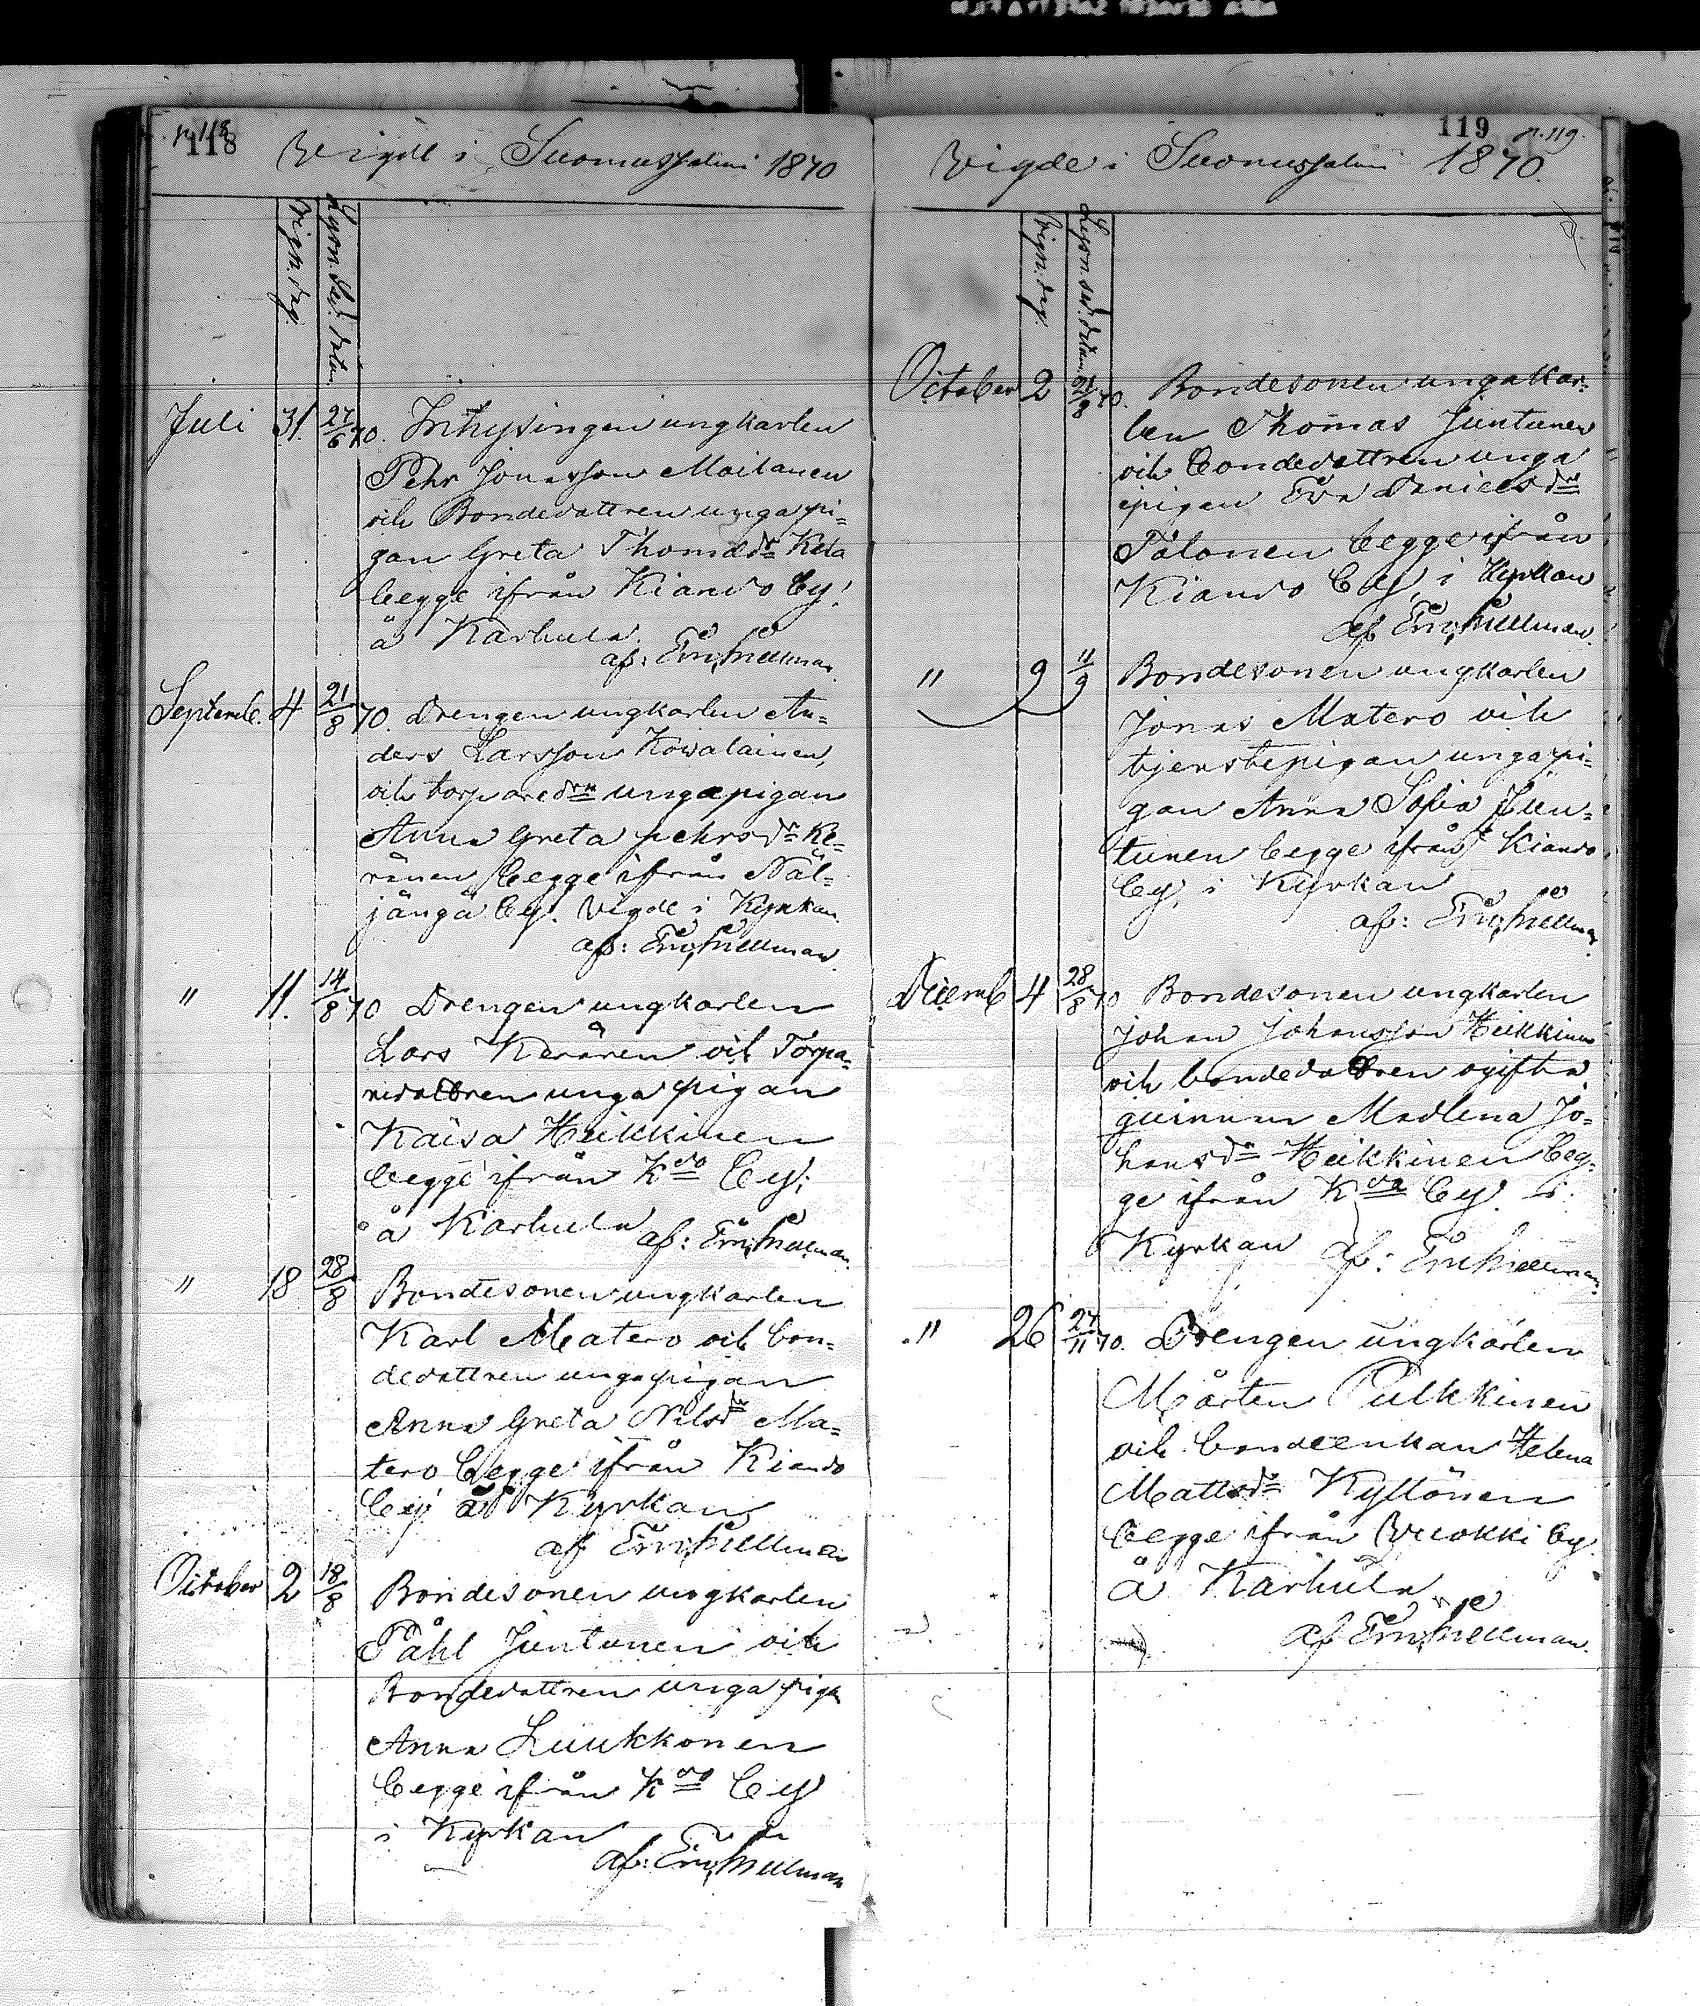 p. 118
118
Vigde i Suomussalmi 1870
Vign. dag.
Lysn. sed. datum
Juli 31. 27/6 70. Inhysingen ungkarlen
Pehr Jonasson Moilanen
och Bondedottren unga pi=
gan Greta Thomasdr Kela
begge ifrån Kiando by!
å Karhula.
af: Em. Snellman.
Septemb. 4 21/8 70. Drengen ungkarlen An=
ders Larsson Kowalainen,
och torparedrn unga pigan
Anna Greta Pehrsdr Ke=
ränen begge ifrån Näl=
jängä by. Vigde i Kyrkan.
af: Em. Snellman.
" 11. 14/8 70 Drengen ungkarlen
Lars Keränen och Torpa=
redottren unga pigan
Kaisa Heikkinen
begge ifrån Kdo by;
å Karhula af: Em. Snellman.
" 18 28/8 Bondesonen ungkarlen
Karl Matero och bon=
dedottren unga pigan
Anna Greta Nilsdr Ma=
tero begge ifrån Kiando
by å Kyrkan
af Em. Snellman
October 2 18/8 Bondesonen ungkarlen
Påhl Juntunen och
Bondedottren unga piga
Anna Luukkonen
begge ifrån Kdo by
i Kyrkan
af: Em. Snellman
119 p. 119.
Vigde i Suomussalmi 1870.
Vign. dag.
Lysn. sed. datum
October 2 21/8 70. Bondesonen ungakar=
len Thomas Juntunen
och bondedottren unga
pigan Eva Danielsdr
Tolonen begge ifrån
Kiando by, i Kyrkan
af Em. Snellman.
" 9 11/9 Bondesonen ungkarlen
Jonas Matero och
tjenstepigan unga pi=
gan Anna Sofia Jun=
tunen begge ifrån Kiando
by, i Kyrkan
af: Em. Snellman
Decemb 4 28/8 70 Bondesonen ungkarlen
Johan Johansson Heikkinen
och bondedottren ogifta
quinnan Madlena Jo=
hansdr Heikkinen beg=
ge ifrån Kdo by i
Kyrkan af: Em Snellman
" 26 27/11 70. Drengen ungkarlen
Mårten Pulkkinen
och bondeenkan Helena
Mattsdr Kyllönen
begge ifrån Vuokki by
å Karhula
af Em. Snellman.